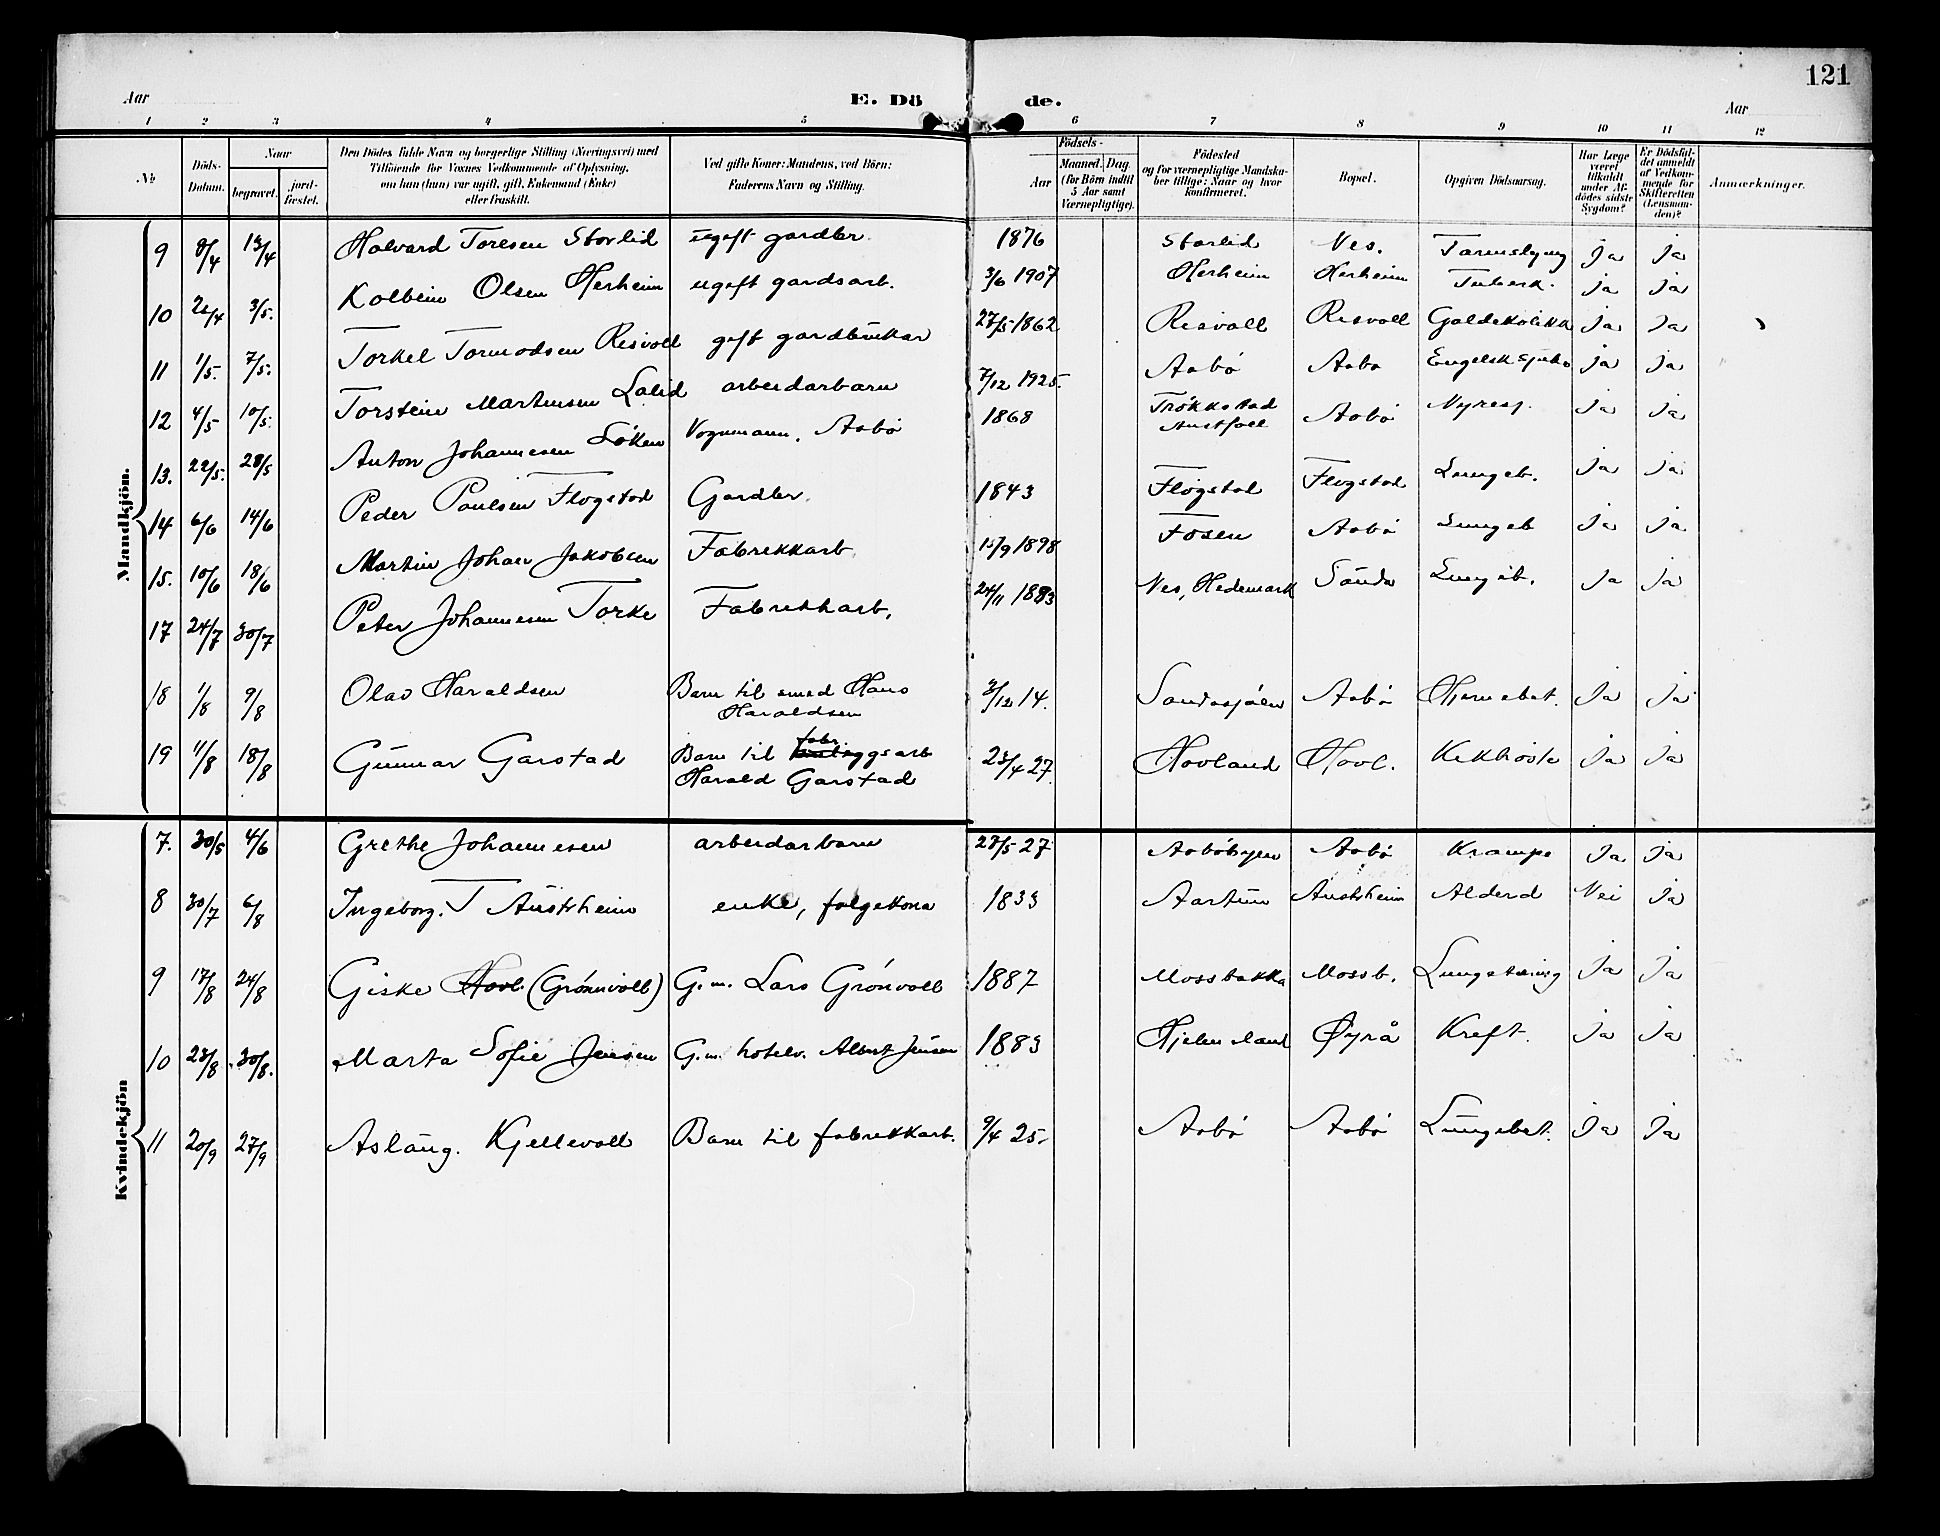 121
Aar E. Dö de. Aar
1 2 3 4 5 6 7 8 9 10 11 12
No
Döds-Datum.
Naar
begravet.
jord-fæstet.
Den Dödes fulde Navn og borgerlige Stilling (Næringsvei) med
Tilföiende for Voxnes Vedkommende af Oplysning,
om han (hun) var ugift, gift, Enkemand (Enke)
eller fraskilt.
Ved gifte Koner: Mandens, ved Börn:
Faderens Navn og Stilling.
Födsels-
Aar
Maaned. Dag.
(for Börn indtil
5 Aar samt
Værnepligtige).
Födested
og for værnepligtige Mandska-
ber tillige: Naar og hvor
konfirmeret.
Bopæl.
Opgiven Dödsaarsag.
Har Læge
været
tilkaldt
under Af-
dödes sidste
Sygdom?
Er Dödsfal-
det anmeldt
af Vedkom-
mende for
Skifteretten
(Lensman-
den)?
Anmærkninger.
Mandkjön.
9 8/4 13/4 Halvard Toresen Storlid ugift gardbr. 1876 Storlid Ves. Ja Ja
10 26/4 3/5. Kolbein Olsen Herheim ugift gardsarb. 3/6 1907 Herheim Herheim Tuberk. Ja Ja
11 1/5. 7/5. Torkel Tormodsen Risvoll gift gardbrukar 27/5 1862 Risvoll Risvoll Galdekolikk Ja Ja
12 4/5 10/5. Torstein Martinsen Lalid arbeidarbarn 7/12 1925. Aabø Aabø Engelsk sjuke Ja Ja
13. 22/5. 28/5 Anton Johannesen Løken Vognmann, Aabø 1868 Trøkkstad Austfoll Aabø Nyresj. Ja Ja
14 6/6 14/6 Peder Paulsen Flogstad Gardbr. 1843 Fløgstad Flogstad Lungeb. Ja Ja
15. 10/6 18/6 Martin Johan Jakobsen Fabrekkarb 15/9 1898 Fosen Aabø Lungeb Ja Ja
17 24/7 30/7 Peter Johannesen Torke Fabrekkarb. 24/11 1883 Nes, Hedemark Sauda Lungeb. Ja Ja
18 1/8 9/8 Olav Haraldsen Barn til smed Hans
Haraldsen 3/12 14. Saudasjøen Aabø Hjernebet. Ja Ja
19 11/8 18/8 Gunnar Garstad Barn til fabr. arb
Harald Garstad 23/4 27. Hovland Hovl. Kikhoste Ja Ja
Kvindekjön
7. 30/5 4/6 Grethe Johannesen arbeidarbarn 27/5 27 Aabøbyen Aabø Krampe Ja Ja
8 30/7 6/8 Ingeborg. T Austrheim enke, folgekona 1833 Aartun Austrheim Alderd Nei Ja
9 17/8 24/8 Giske Hovl. (Grønvoll) G.m. Lars Grønvoll 1887 Mossbakka Mossb. Ja Ja
10 23/8 30/8. Marta Sofie Jensen G.m. hotelv. Albert Jensen 1883 Hjelmeland Øyrå Kreft. Ja Ja
11 20/9 27/9 Aslaug. Kjellevoll Barn til fabrekkarb. 9/4 25. Aabø Aabø Lungebet. Ja Ja